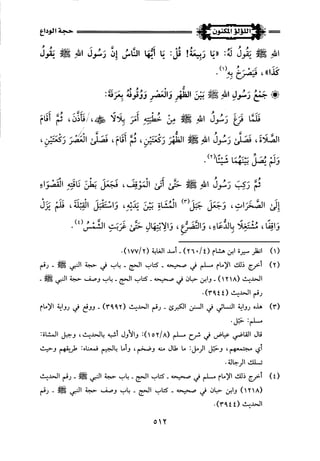 اللؤلؤ المكنون
حجة الوداع
اللهِ ﷺ يَقُولُ لَهُ: «يَا رَبِيعَةُ! قُلْ: يَا أَيُّهَا النَّاسُ إِنَّ رَسُولَ اللهِ ﷺ يَقُولُ
كَذَا»، فَيَصْرُخُ بِهِ(١).
* جَمْعُ رَسُولِ اللهِ ﷺ بَيْنَ الظُّهْرِ وَالْعَصْرِ وَوُقُوفُهُ بِعَرَفَةَ:
فَلَمَّا فَرَغَ رَسُولُ اللهِ ﷺ مِنْ خُطْبَتِهِ أَمَرَ بِلَالًا فَأَذَّنَ، ثُمَّ أَقَامَ
الصَّلَاةَ، فَصَلَّى رَسُولُ اللهِ ﷺ الظُّهْرَ رَكْعَتَيْنِ، ثُمَّ أَقَامَ، فَصَلَّى الْعَصْرَ رَكْعَتَيْنِ،
وَلَمْ يُصَلِّ بَيْنَهُمَا شَيْئًا(٢).
ثُمَّ رَكِبَ رَسُولُ اللهِ ﷺ حَتَّى أَتَى الْمَوْقِفَ، فَجَعَلَ بَطْنَ نَاقَتِهِ الْقَصْوَاءِ
إِلَى الصَّخَرَاتِ، وَجَعَلَ حَبْلَ(٣) الْمُشَاةِ بَيْنَ يَدَيْهِ، وَاسْتَقْبَلَ الْقِبْلَةَ، فَلَمْ يَزَلْ
وَاقِفًا، مُشْتَغِلًا بِالدُّعَاءِ، وَالتَّضَرُّعِ، وَالِابْتِهَالِ حَتَّى غَرَبَتِ الشَّمْسُ(٤).
(١) انظر سيرة ابن هشام (٤/٢٦٠) - أسد الغابة (٢/١٧٧).
(٢) أخرج ذلك الإمام مسلم في صحيحه - كتاب الحج - باب في حجة النبي ﷺ - رقم
الحديث (١٢١٨) - وابن حبان في صحيحه - كتاب الحج - باب وصف حجة النبي ﷺ -
رقم الحديث (٣٩٤٤).
(٣) هذه رواية النسائي في السنن الكبرى - رقم الحديث (٣٩٩٢) - ووقع في رواية الإمام
مسلم: حَبْل.
قال القاضي عياض في شرح مسلم (٨/١٥٢): والأول أشبه بالحديث، وحبل المشاة:
أي مجتمعهم، وحَبْل الرمل: ما طال منه وضخم، وأما بالجيم فمعناه: طريقهم وحيث
تسلك الرجالة.
(٤) أخرج ذلك الإمام مسلم في صحيحه - كتاب الحج - باب حجة النبي ﷺ - رقم الحديث
(١٢١٨) وابن حبان في صحيحه - كتاب الحج - باب وصف حجة النبي ﷺ - رقم
الحديث (٣٩٤٤).
٥١٢